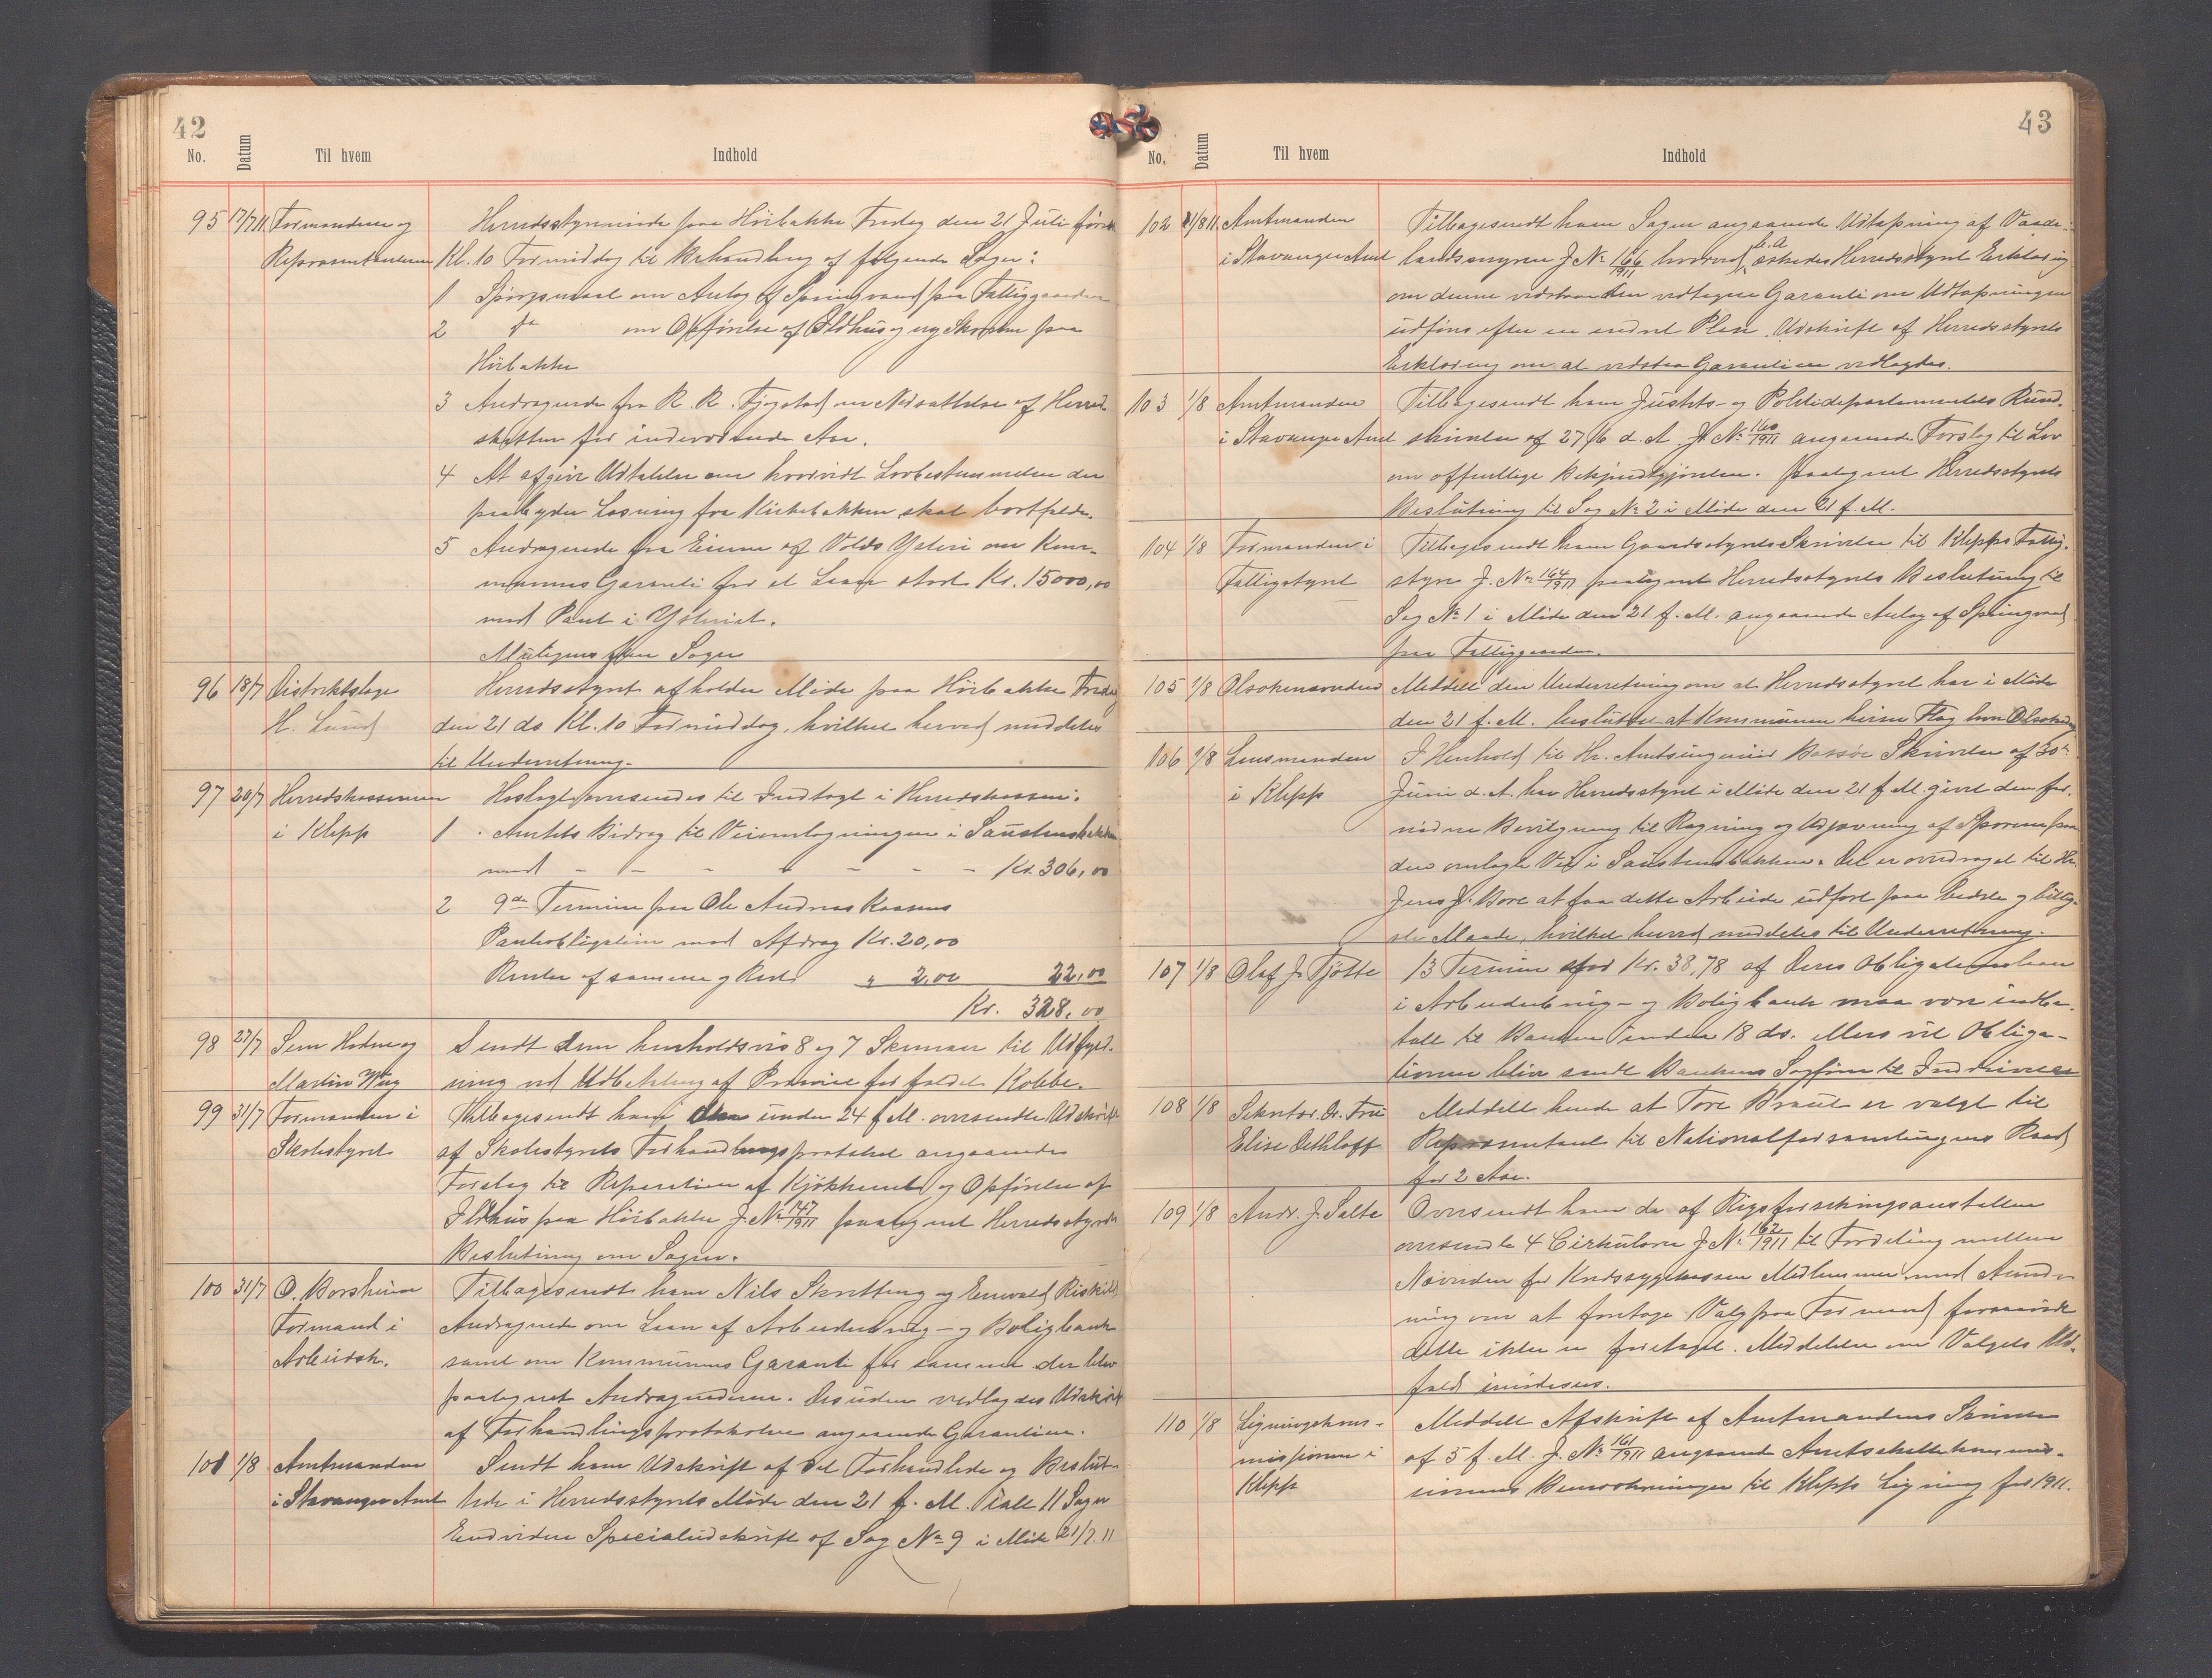 42
No. Datum Til hvem Indhold
95 17/7 11 Formændene og Herredsstyremøde paa Hörbakke Fredag den 21 Juli först
Repræsentanterne Kl. 10 Formiddag til Behandling af følgende Sager:
1 Spörgsmaal om Anlæg af Springvand paa Fattiggaarden
2 do om Opförelse af Ildhus og ny Skorsten paa
Hörbakke
3 Andragende fra R. R. Fjogstad om Nedsættelse af Herred
skatten for indeværende Aar.
4 At afgive Udtalelse om hvorvidt Lovbestemmelsen der
paabyder Læsning fra Kirkebakken skal bortfalde.
5 Andragende fra Eierne af Volds Ysteri om Kom-
munens Garanti for et Laan stort Kr. 15000,00
med Pant i Ysteriet.
Muligens flere Sager
96 18/7 Distriktslæge Herredsstyret afholder Möde paa Hörbakke Fredag
H. Lund den 21 ds Kl. 10 Formiddag, hvilket herved meddeles
til Underretning.
97 20/7 Herredskassereren Hoslagt oversendes til Indtægt i Herredskassen:
i Klepp 1 Amtets Bidrag til Veiomlægningen i Saustensbakken
med - - - - - - - Kr. 306,00
2 9de Termin paa Ole Andreas Kaasens
Panteobligation med Afdrag Kr. 20,00
Renter af samme og Rest " 2,00 22,00
Kr. 328,00
98 27/7 Sem Hodne og Sendt dem henholdsvis 8 og 7 Skemaer til Udfyld-
Martin Wiig ning ved Udbetaling af Præmie for fældet Kobbe.
99 31/7 Formanden i Tilbagesendt ham den under 24 f. M. oversendte Udskrift
Skolestyret af Skolestyrets Forhandlingsprotokol angaaende
Forslag til Reparation af Kjøkkenet og Opförelse af
Ildhus paa Hörbakke J. No 147/1911 paategnet Herredsstyrets
Beslutning om Sagen.
100 31/7 O. Borsheim Tilbagesendt ham Nils Skretting og Enevald
Formand i Andragende om Laan af Arbeiderbrug- og Boligbanken
Arbeidsk. samt om Kommunens Garanti for samme der blev
paategnet Andragenderne. Desuden vedlagdes Udskrift
af Forhandlingsprotokolen angaaende Garantien.
101 1/8 Amtmanden Sendt ham Udskrift af det Forhandlede og Beslut-
i Stavanger Amt tede i Herredsstyrets Möde den 21 f. M. Ialt 11 Sager
Endvidere Specialudskrift af Sag No 9 i Möde 21/7. 11
43
No. Datum Til hvem Indhold
102 1/8 11 Amtmanden Tilbagesendt ham Sagen angaaende Udtapning af
i Stavanger Amt J No 166/1911 hvorved b.a. æskedes Herredsstyret Erklæring
om denne vedstaar den vedtagne Garanti om Udtapningen
udføres efter en endret Plan. Udskrift af Herredsstyrets
Erklæring om at vedstaa Garantien vedlagdes.
103 1/8 Amtmanden Tilbagesendt ham Justits- og Politidepartementets Rund-
i Stavanger Amt skrivelse af 27/6 d. A. J. No 160/1911 angaaende Forslag til Lov
om offentlige Bekjendtgjörelser. paategnet Herredsstyrets
Beslutning til Sag No 2 i Möde den 21 f. M.
104 1/8 Formanden i Tilbagesendt ham Gaardsstyrets Skrivelse til Klepps Fattig-
Fattigstyret styre J. No 164/1911 paategnet Herredsstyrets Beslutning til
Sag No 1 i Möde den 21 f. M. angaaende Anlæg af Springvand
paa Fattiggaarden.
105 1/8 Olsoknævnden Meddelt den Underretning om at Herredsstyret har i Möde
den 21 f. M. besluttet at Kommunen heiser Flag hver Olsokdag
106 1/8 Lensmanden I Henhold til Hr. Amtsingeniör Bassöe Skrivelse af 30te
i Klepp Juni d. A. har Herredsstyret i Möde den 21 f. M. givet den for-
nödne Bevilgning til Rægning og Udjævning af Sporene paa
den omlagte Vei i Saustensbakken. Det er overdraget til Hr.
Jens J. Bore at faa dette Arbeide udfört paa bedste og billig-
ste Maade, hvilket herved meddeles til Underretning.
107 1/8 Olaf J. Tjötte 13 Termin stor Kr. 38,78 af Deres Obligationslaan
i Arbeiderbrug- og Boligbank maa være indbe-
talt til Banken inden 18 ds. Mers vil Obliga-
tionen bliver sendt Bankens Sagförer til Inddrivelse
108 1/8 Sekretær. Dr. Frue Meddelt hende at Tore Braut er valgt til
Elise Dethloff Repræsentant til Nationalforsamlingens Raad
for 2 Aar.
109 1/8 Andr. J. Salte Oversendt ham de af Rigsforsikringsanstalten
oversendte 4 Cirkulære J No 162/1911 til Fordeling mellem
Nævnden for Kredssygekassen Medlemmer med Anmod-
ning om at foretage Valg paa Formand forsaavidt
dette ikke er foretaget. Meddelelse om Valgets Ud-
fald imödesees.
110 1/8 Ligningskom- Meddelt Afskrift af Amtmandens Skrivelse
missionen i af 5 f. M. J. No 161/1911 angaaende Amtsskattekommis-
Klepp sionens Bemærkninger til Klepps Ligning for 1911.